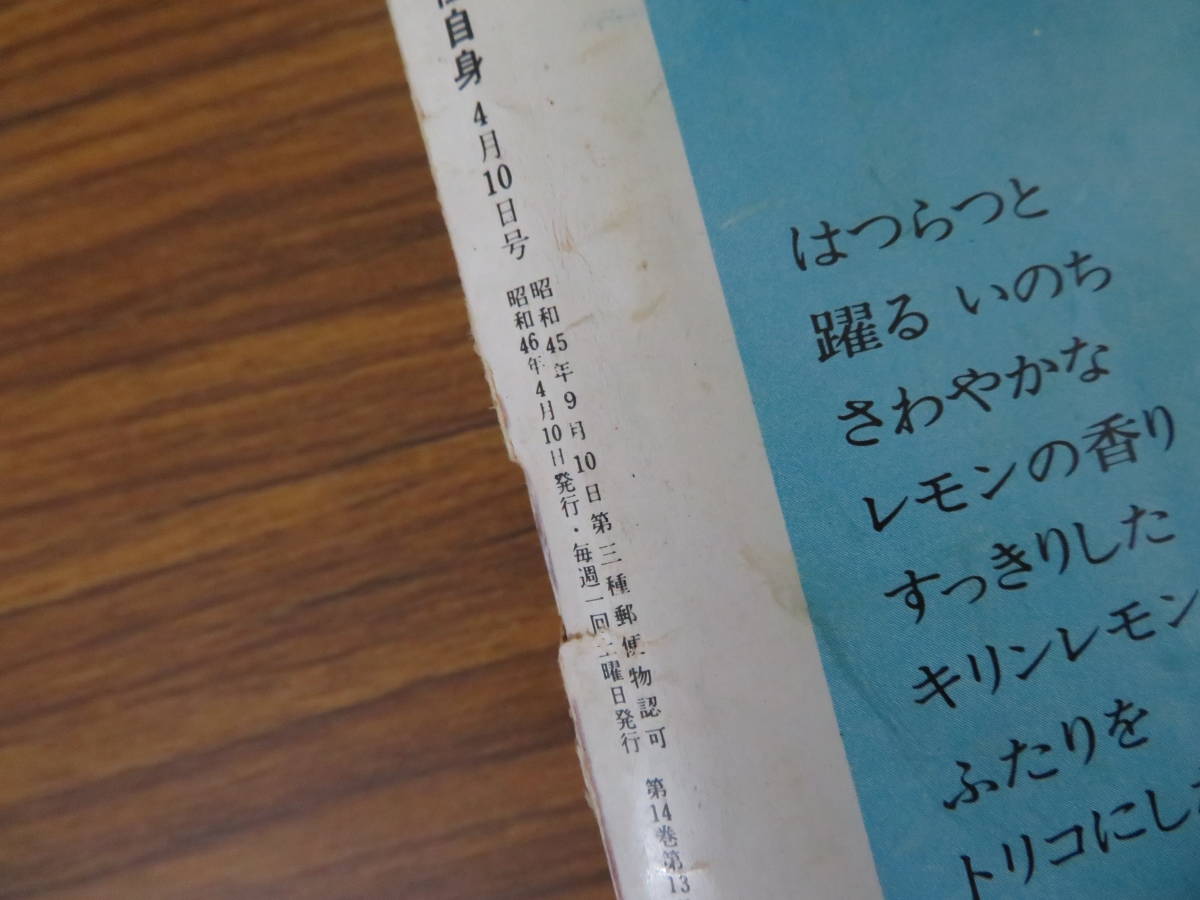 自身 4月10日号
昭和45年9月10日第三種郵便物認可
昭和46年4月10日発行・毎週一回土曜日発行
第14巻第13
はつらつと
躍る いのち
さわやかな
レモンの香り
すっきりした
キリンレモン
ふたりを
トリコにし